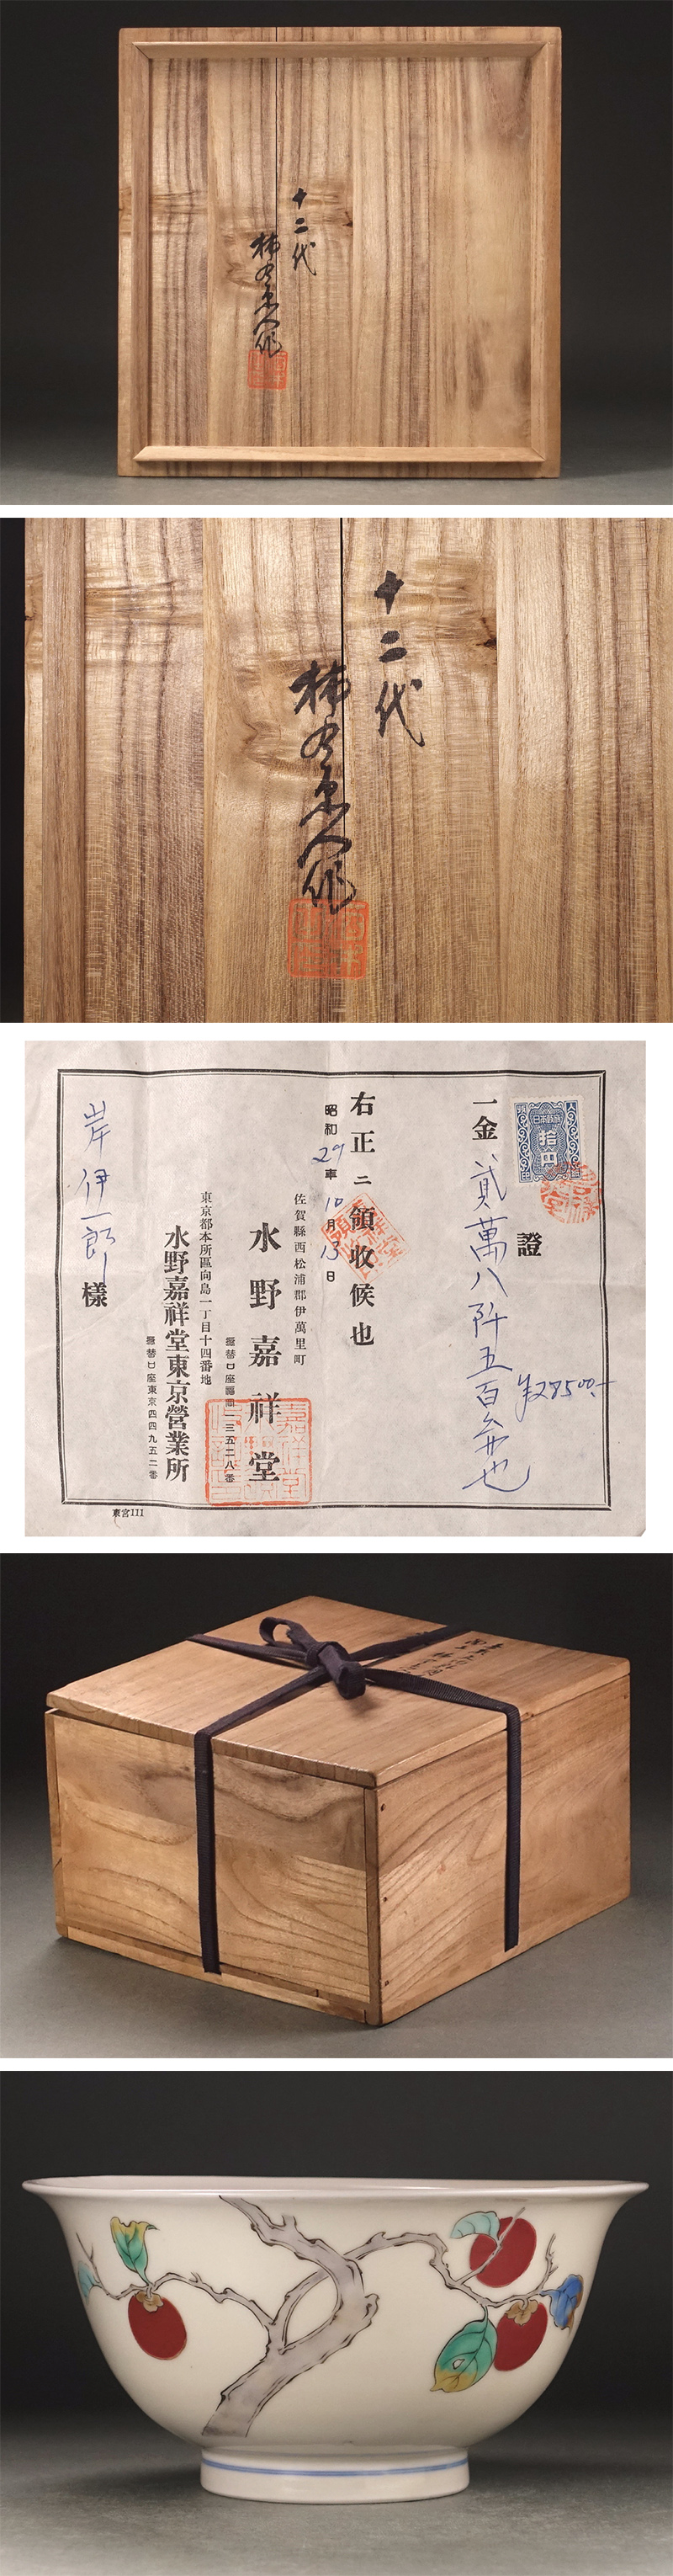 十二代
柿右衛門作
十二代
柿右衛門作
證
一金 貳萬八阡五百円也
¥28500.-
拾円
右正ニ領收候也
昭和29年10月13日
佐賀縣西松浦郡伊萬里町
水野嘉祥堂
振替口座福岡一三五二八番
東京都本所區向島一丁目十四番地
水野嘉祥堂東京營業所
振替口座東京四四九五二番
岸伊一郎様
東宮III